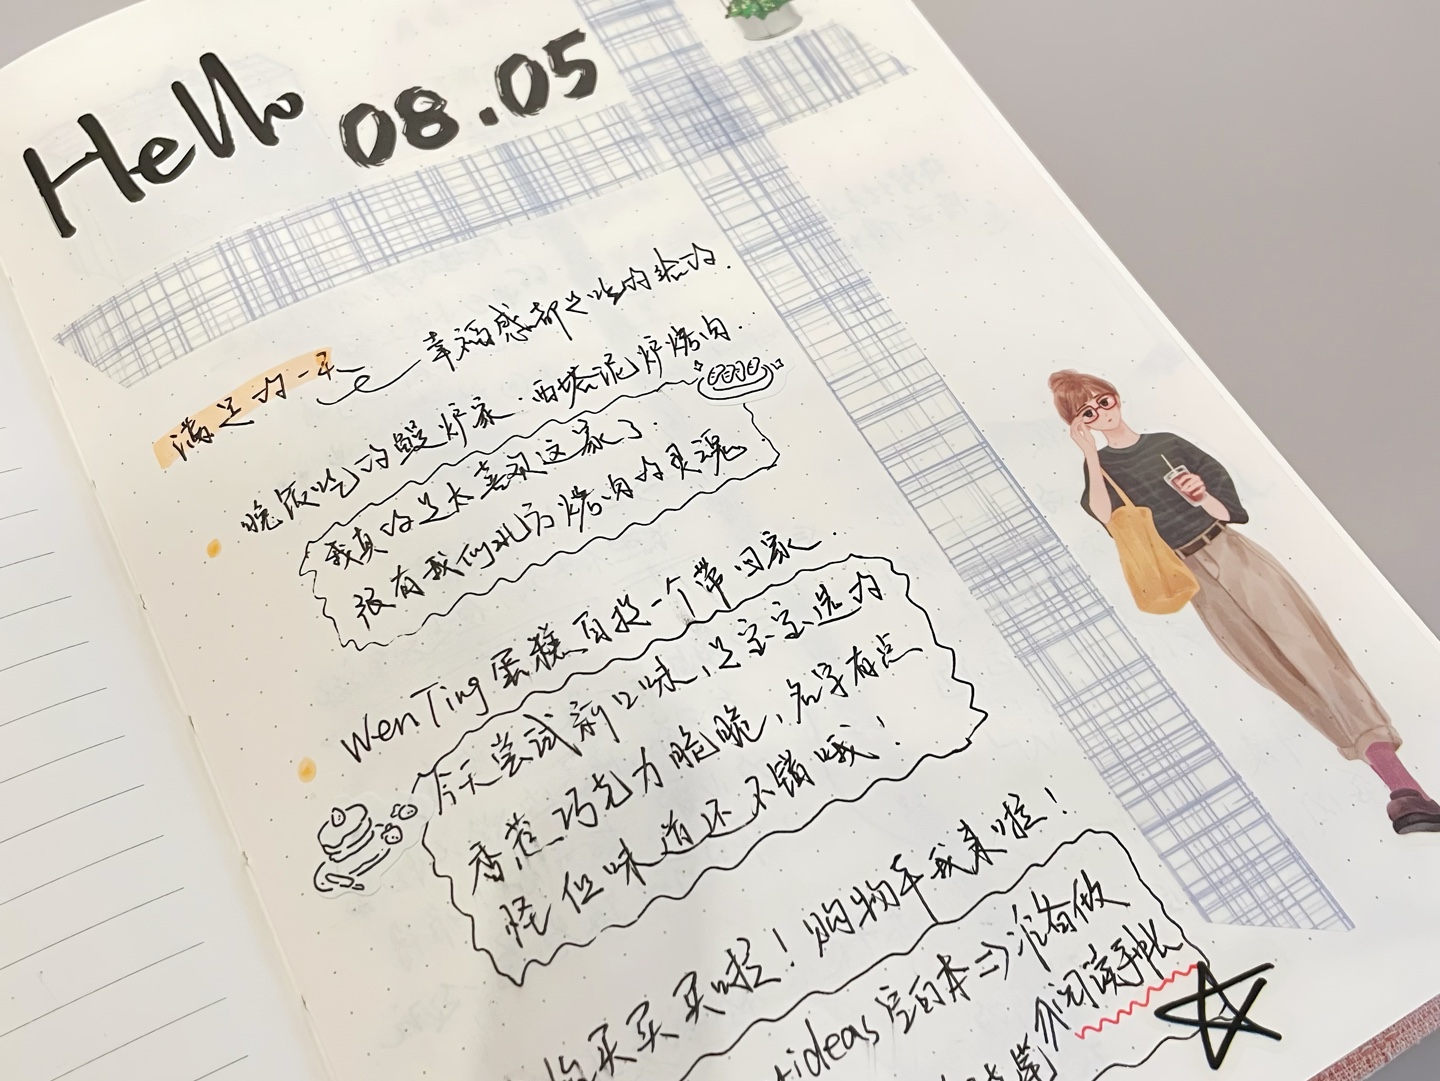 Hello 08.05
满足的一天 幸福感都是吃的给的.
晚饭吃的鳗炉家.西塔泥炉烤肉.
我真的是太喜欢这家了.
很有我们北方烤肉的灵魂
WenTing 蛋糕自提一个带回家.
今天尝试新口味,是宝宝选的
香蕉巧克力脆脆,名字有点
怪但味道还不错哦!
买买买啦!购物车我来啦!
ideas 空白本⇒准备做
阅读手帐